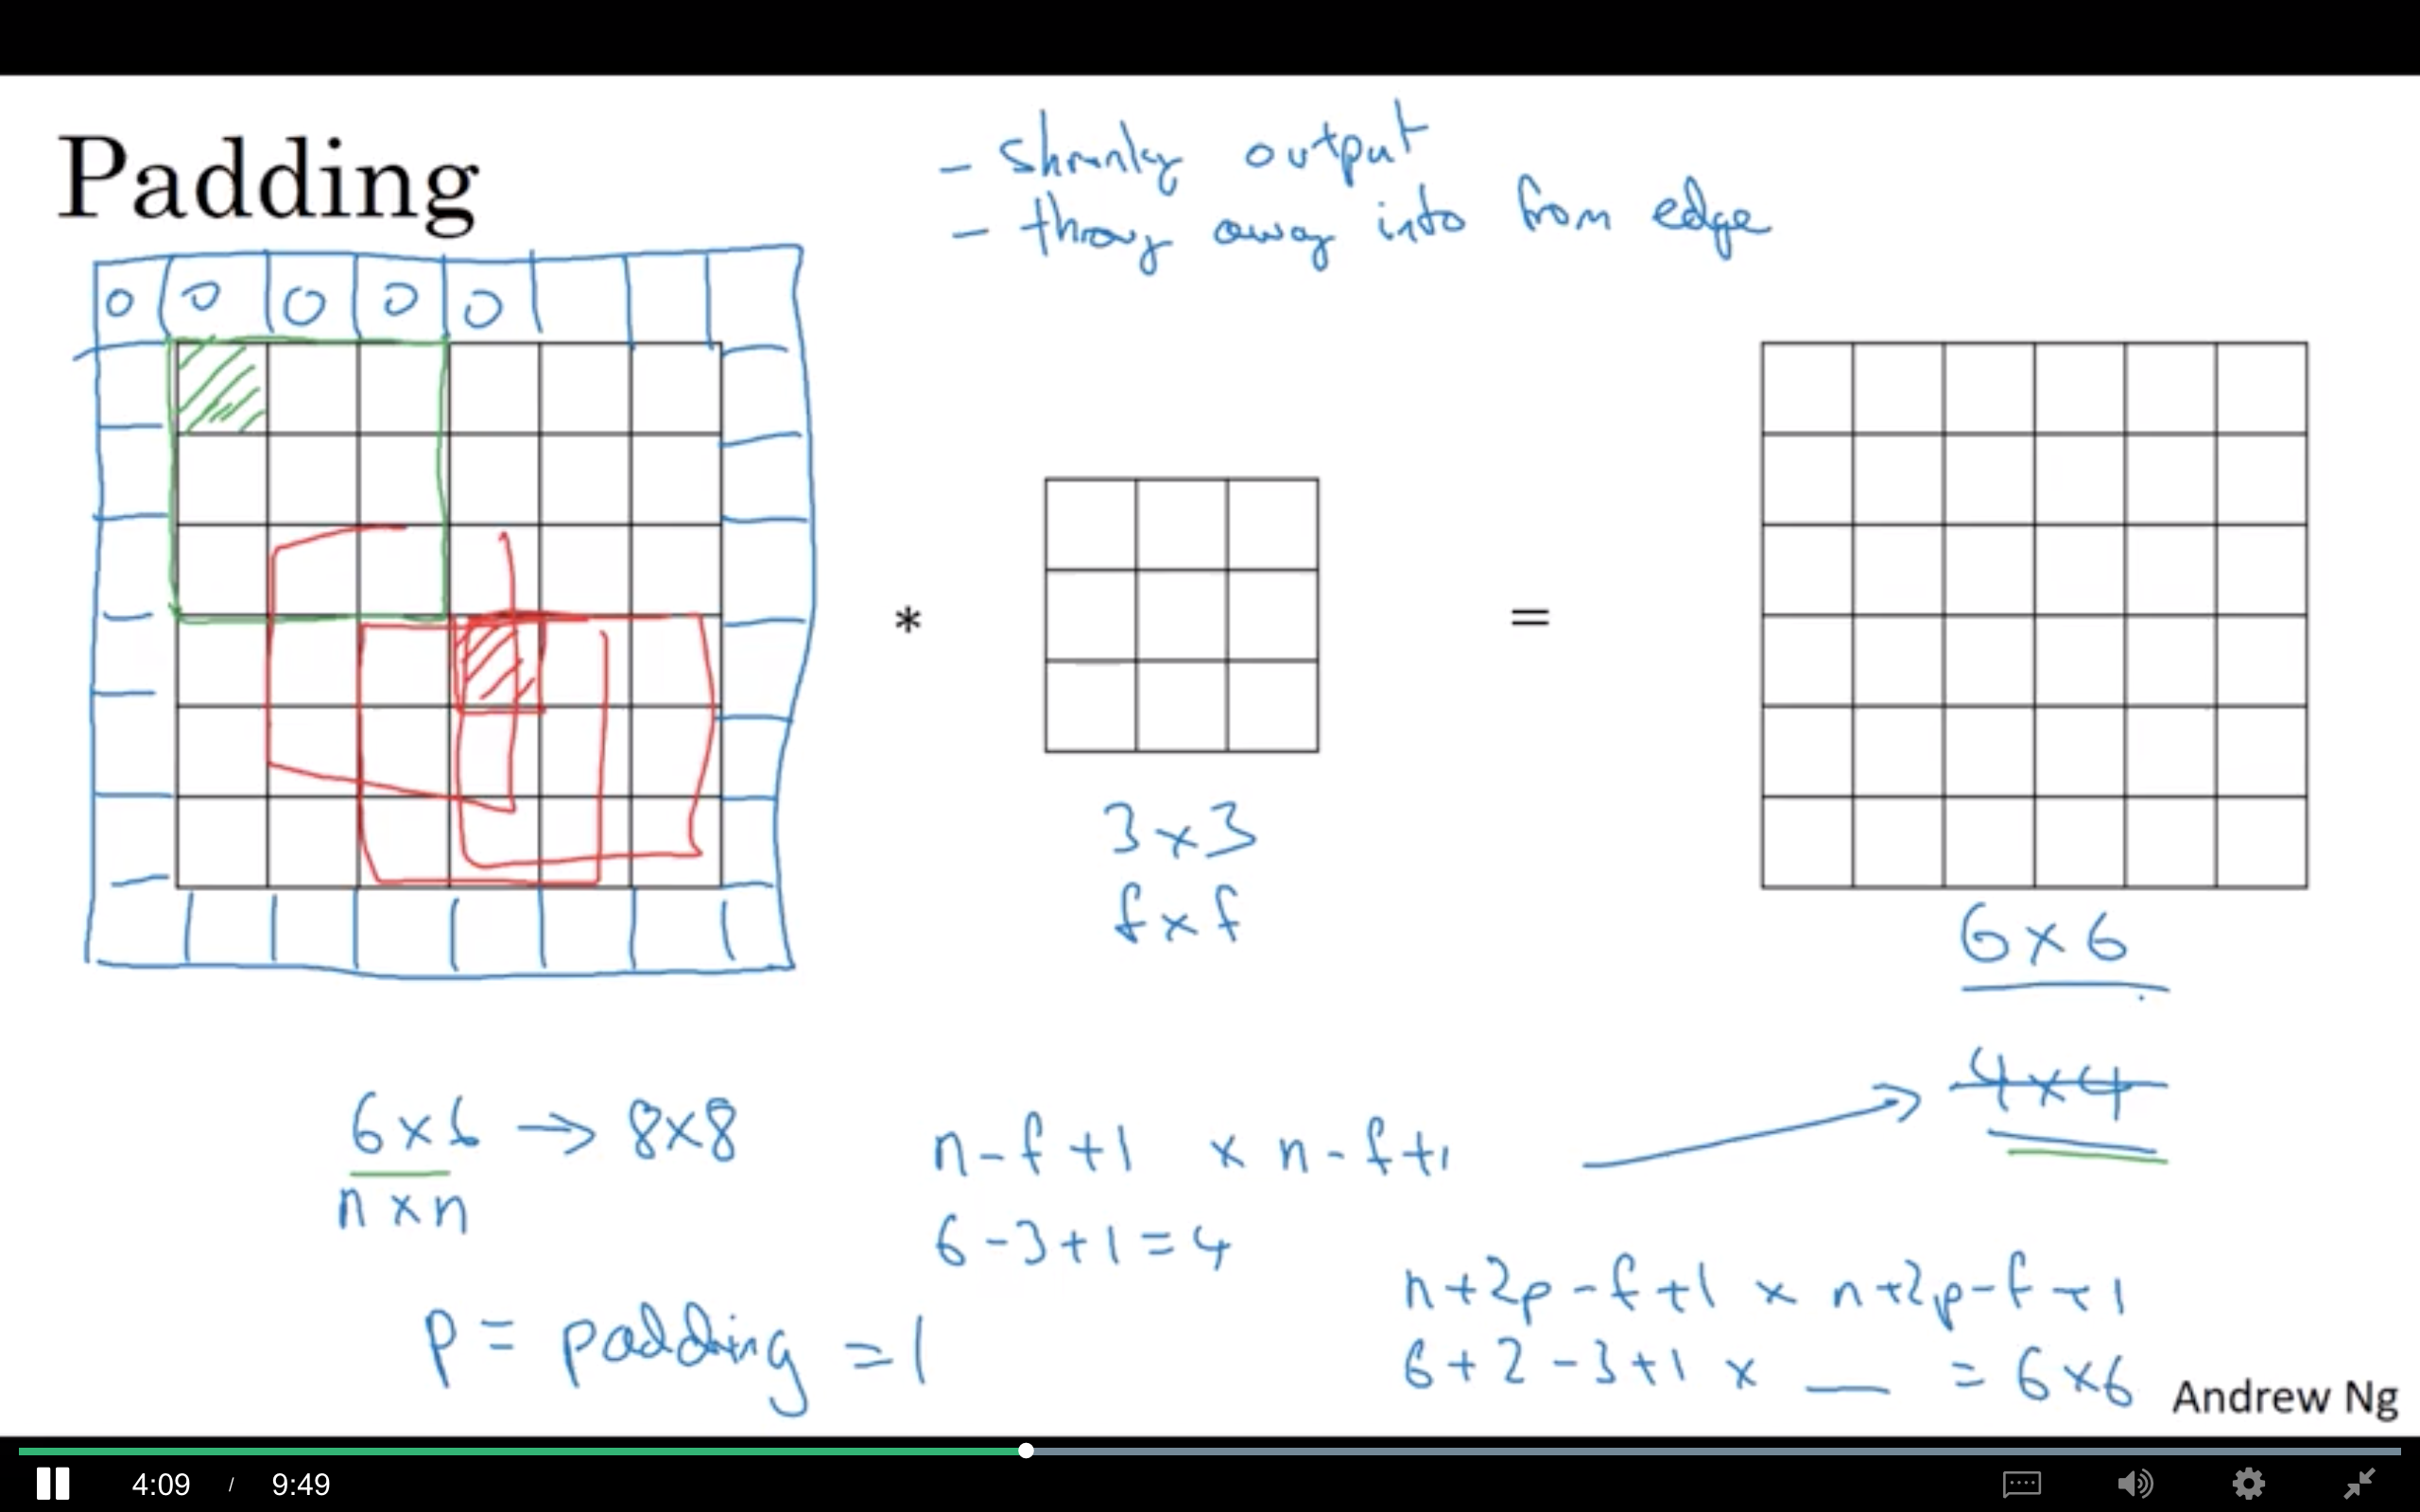 Padding
- shrinky output
- throwy away info from edge
0 0 0 0 0
*
=
3 x 3
f x f
6 x 6
4 x 4
6 x 6 → 8 x 8
n x n
n - f + 1 x n - f + 1
6 - 3 + 1 = 4
p = padding = 1
n + 2p - f + 1 x n + 2p - f + 1
6 + 2 - 3 + 1 x __ = 6 x 6
Andrew Ng
4:09 / 9:49